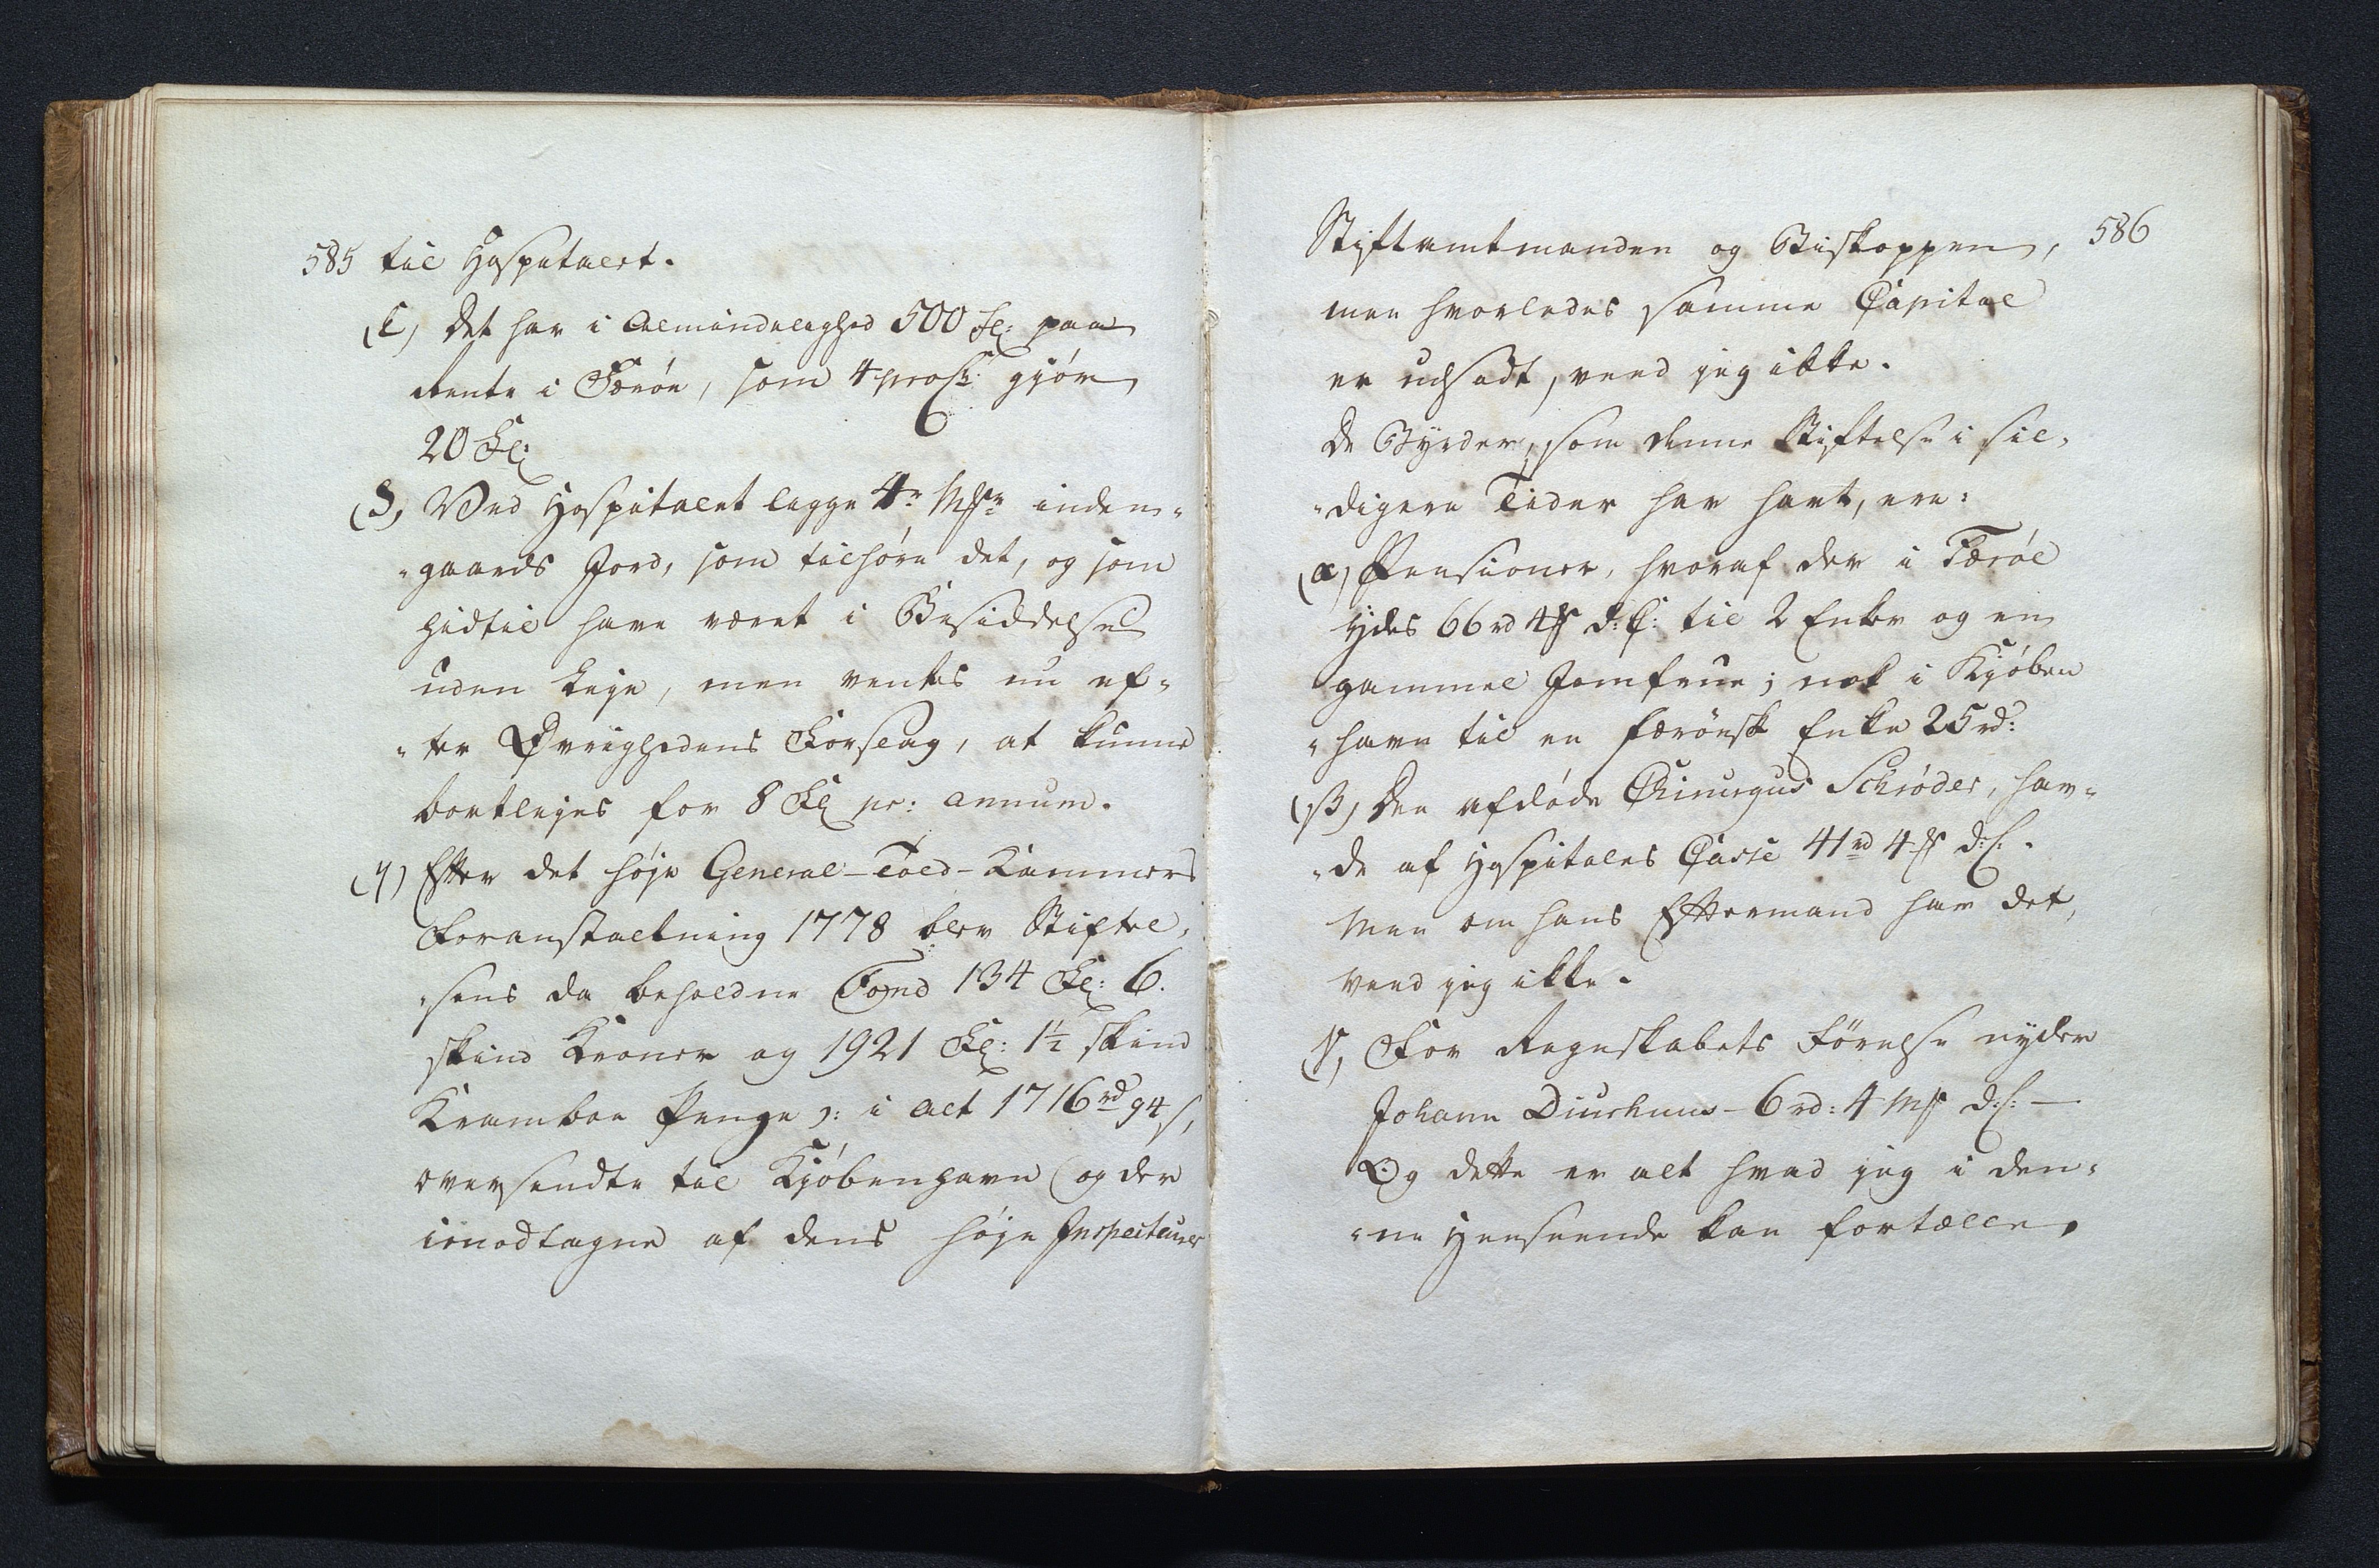 585 til Hospitalet.
(ε) Det har i Almindelighed 500 Fl: paa
Rente i Færöe, som 4 proCt: gjör
20 Fl:
(δ) Ved Hospitalet ligge 4re Mkr inden-
-gaards Jord, som tilhöre det, og som
hidtil have været i Besiddelse
uden Leje, men ventes nu ef-
-ter Øvrighedens Forslag, at kunne
bortlejes for 8 Fl pr: annum.
(η) Efter det höje General-Told-Kammers
Foranstaltning 1778 blev Stiftel-
-sens da beholdne Fond 134 Fl: 6.
skind Kroner og 1921 Fl: 1½ skind
Kramboe Penge ɔ: i alt 1716 rd 94 s,
oversendte til Kjöbenhavn (og der
imodtagne af dens höje Inspecteurer
Stiftamtmanden og Biskoppen, 586
men hvorledes samme Capital
er udsadt, veed jeg ikke.
De Byrder, som denne Stiftelse i sil-
-digere Tider har havt, ere:
(α) Pensioner, hvoraf der i Færöe
ydes 66 rd 4 ß d: C: til 2 Enker og en
gammel Jomfrue; nok i Kjöben
-havn til en færöisk Enke 25 rd:
(β) Den afdöde Chirurgus Schröder, hav-
-de af Hospitales Casse 41 rd 4 ß d: C.
Men om hans Eftermand har det,
veed jeg ikke.
(γ) For Regnskabets Förelse nyder
Johann Diurhuus - 6 rd: 4 Mk d: C: —
Og dette er alt hvad jeg i den-
-ne Henseende kan fortælle.